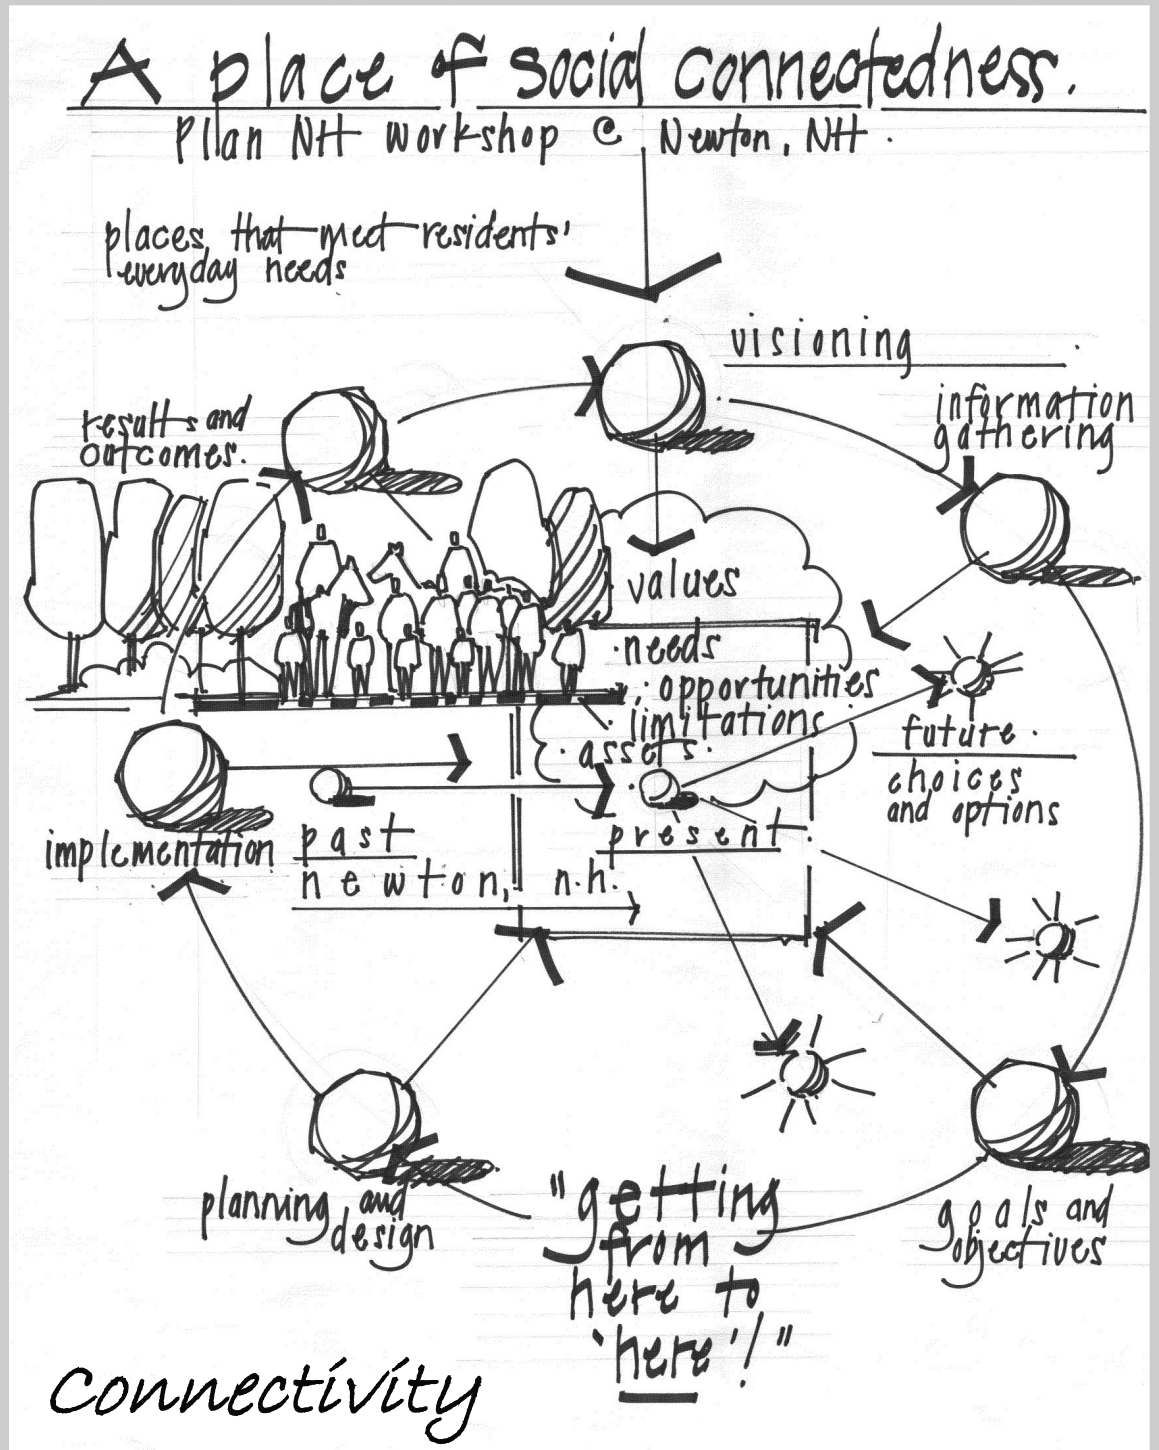 A place of social connectedness.
Plan NH workshop @ Newton, NH.
places that meet residents'
everyday needs
visioning
information
gathering
results and
outcomes.
values
·needs
·opportunities
·limitations
·assets·
future·
choices
and options
implementation
past
present
newton, n.h.
planning and
design
"getting
from
here to
'here'!"
goals and
objectives
Connectivity